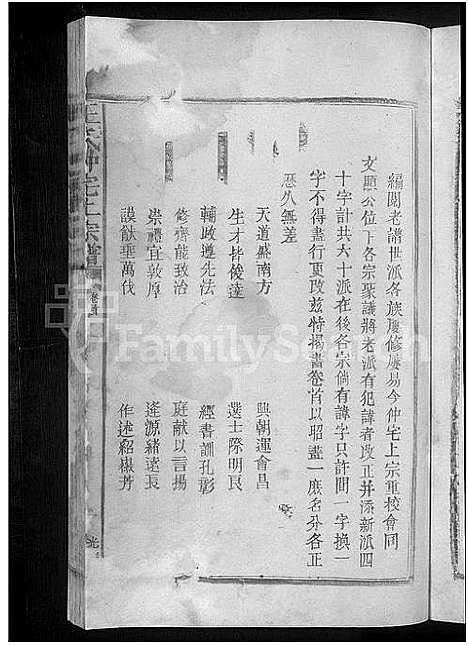 編閱老譜世派各族屢修屢易今仲宅上宗重校會同
文顯公位下各宗聚議將老派有犯諱者改正并添新派四
十字計共六十派在後各宗倘有諱字只許間一字換一
字不得盡行更改茲特揭書卷首以昭畫一庶名分各正
悉久無差
天道盛南方 興朝運會昌
生才皆俊達 選士際明良
輔政遵先法 經書訓孔彰
修齊能致治 庭献以言揚
崇禮宜敦厚 逢源緒遠長
謨猷垂萬代 作述紹徽芳
宅上宗譜
卷首
FamilySearch